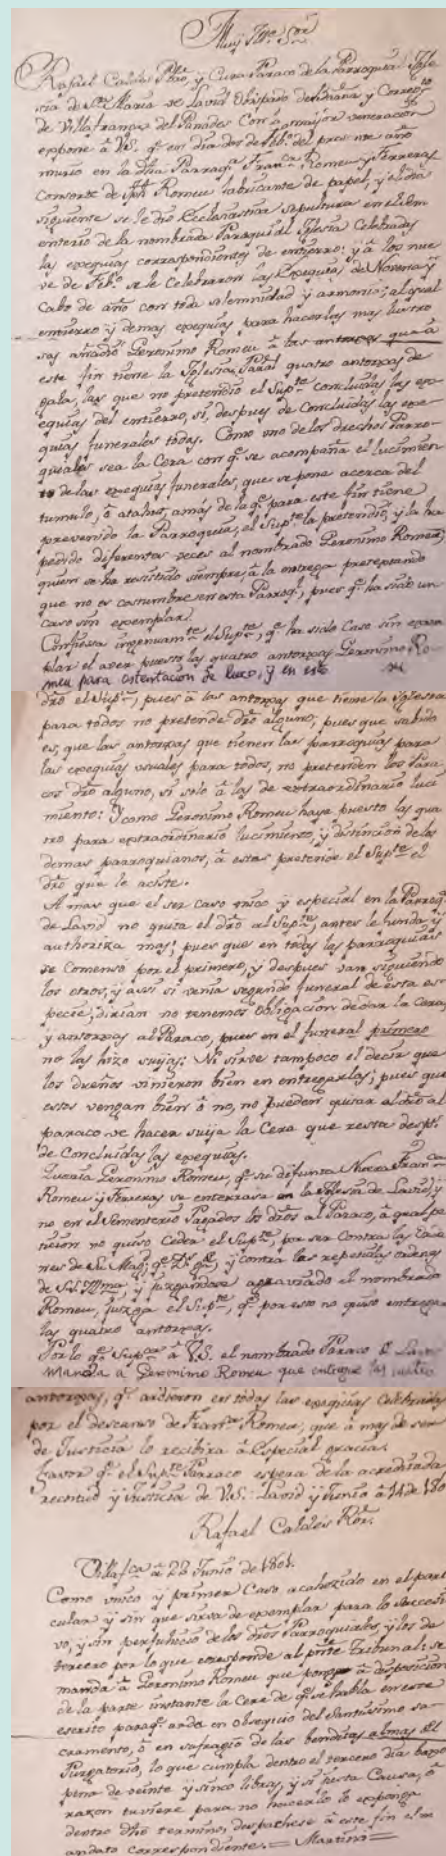 Muy Iltre Sor
Rafael Caldés Pbro, y Cura Paraco de la Parroquial Igle-
sia de Sta Maria de Lavid Obispado de y Correto
de Villafranca del Panadés Con la mayor veneracion
expone á V.S. qe en dia dos de Febo del presente año
murio en la dha Parroqa Franca Romeu y Ferreras
Consorte de Romeu fabricante de papel, y el dia
siguiente se le dió Ecclesiastica sepultura en el Sem
enterio de la nombrada Paroquial Iglesia Celebradas
las exequias correspondientes de entierro; y á los nue
ve de Febo se le Celebraron las Exequias de Novena y
Cabo de año con toda solemnidad y armonia; al qual
entierro y demas exequias para hacerlas mas lustro
sas añadió Geronimo Romeu á las antorxas que á
este fin tiene la Iglesia Paral quatro antorxas de
las que no pretendió el Supte concluidas las ex-
equias del entierro, si, despues de Concluidas las exe-
quias funerales todas. Como uno de los drechos Parro-
quiales sea la Cera con qe se acompaña el lucimien
to de las exequias funerales, que se pone acerca del
tumulo, ó atahut, amás de la qe para este fin tiene
prevenido la Parroquia, el Supte la pretendió, y la ha
pedido diferentes veces al nombrado Geronimo Romeu;
quien se ha resistido siempre á la entrega pretextando
que no es costumbre en esta Parroqa, pues qe ha sido un
caso sin exemplar.
Confiessa ingenuamte el Supte, qe ha sido Caso sin exem
plar el aver puesto las quatro antorxas Geronimo Ro-
meu para ostentacion de luxo, y en esto su
dro el Supte, pues á las antorxas que tiene la Iglesia
para todos no pretende dro alguno, pues que sabido
es, que las antorxas que tienen las parroquias para
las exequias usuales para todos, no pretenden los Para
cos dro alguno, si solo á las de extraordinario luci
miento: Y como Geronimo Romeu haya puesto las qua
tro para extraordinario lucimiento, y distincion de los
demas parroquianos, á estas pretende el Supte el
dro que le asiste.
A mas que el ser caso unico y especial en la Parroqa
de Lavid no quita el dro al Supte, antes le funda y
authoriza mas; pues que en todas las parroquias
se Comensó por el primero, y despues van siguiendo
los otros, y assi si venia segundo funeral de esta es-
pecie, dirian no tenemos obligacion de dar la Cera,
y antorxas al Paraco, pues en el funeral primero
no las hizo suyas: Ni sirve tampoco el decir que
los dueños vinieron bien en entregarlas; pues que
estos vengan bien ó no, no pueden quitar al dro al
paraco de hacer suya la Cera que resta despues
de Concluidas las exequias.
Queria Geronimo Romeu, qe su difunta Nuera Franca
Romeu y Ferreras se enterrase en la Iglesia de Lavid, y
no en el Sementerio Pagados los dros al Paraco, á qual pe
ticion no quiso Ceder el Supte, por ser Contra las
de Su Magd qe Ds ge, y contra las repetidas ordenes
de y juzgandose agraviado el nombrado
Romeu, juzga el Supte, qe por esto no quiso entregar
las quatro antorxas.
Por lo qe á V.S. el nombrado Paraco de Lavid
Manda a Geronimo Romeu que entregue las quatro
antorxas, qe ardieron en todas las exequias Celebradas
por el descanso de Franca Romeu, que á mas de ser
de Justicia lo recibirá á Especial gracia.
Favor qe el Supte Paraco espera de la acreditada
rectitud y Justicia de V.S. Lavid y Junio á 14 de 180
Rafael Caldés Ror.
Villafca á 22 Junio de 1801.
Como unico y primer Caso acahezido en el parti
cular y sin que sirva de exemplar para lo succesi
vo, y sin perjuhicio de los dros Parroquiales, y los de
tercero por lo que coresponde al pnte Tribunal: se
manda á Geronimo Romeu que ponga á disposicion
de la parte instante la Cera de qe se habla en este
escrito paraqe arda en obsequio del Santissimo sa-
cramento, ó en sufragio de las benditas almas del
Purgatorio, lo que cumpla dentro el tercero dia baxo
pena de veinte y sinco libras, y si justa Causa, ó
razon tuviere para no hacerlo lo exponga
dentro dho termino, despachese á este fin el m
andato correspondiente. = Martina =